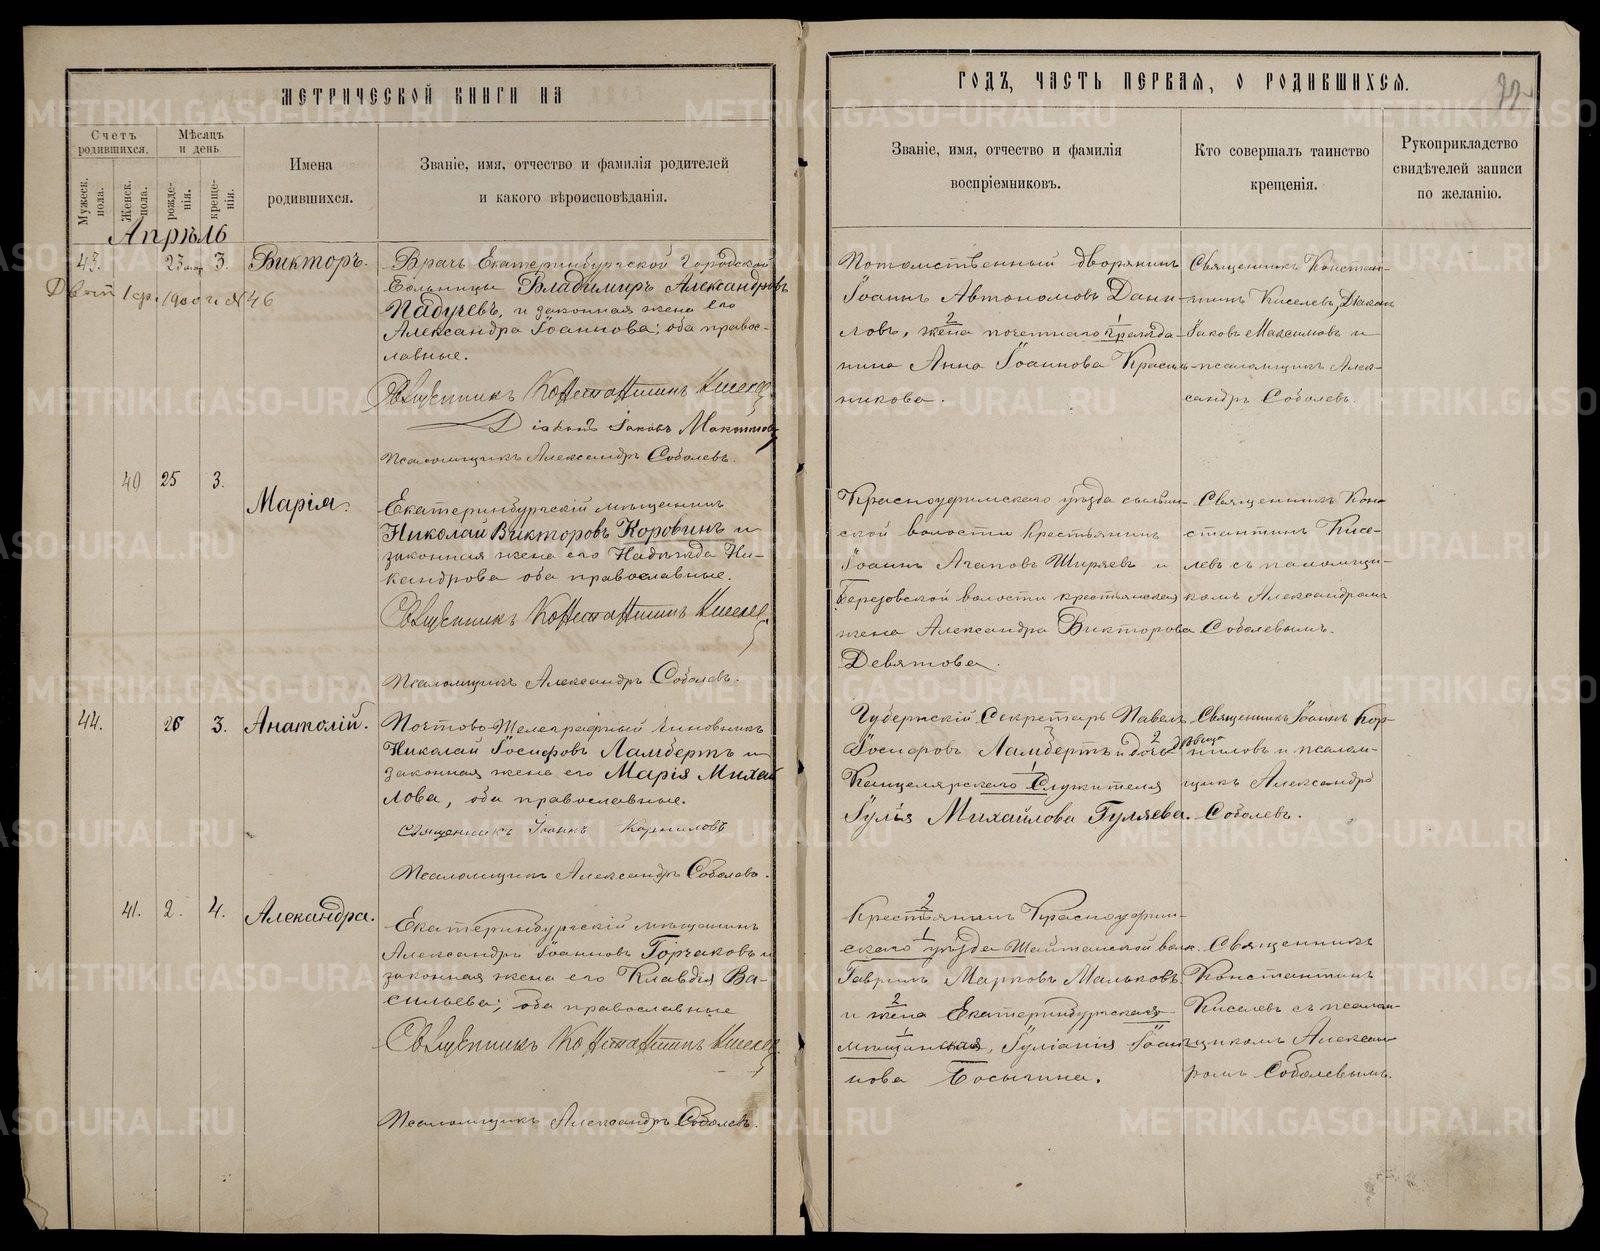 МЕТРИЧЕСКОЙ КНИГИ НА
ГОДЪ, ЧАСТЬ ПЕРВАЯ, О РОДИВШИХСЯ.
Счетъ родившихся.
Мужеск. пола.
Женск. пола.
Мѣсяцъ и день
рожде-нія.
креще-нія.
Имена
родившихся.
Званіе, имя, отчество и фамилія родителей
и какого вѣроисповѣданія.
Званіе, имя, отчество и фамилія
воспріемниковъ.
Кто совершалъ таинство
крещенія.
Рукоприкладство
свидѣтелей записи
по желанію.
Апрѣль
43. 23 3. Викторъ.
1900 г. № 46
Врачъ Екатеринбургской городской
больницы Владимиръ Александровъ
Падучевъ, и законная жена его
Александра Іоаннова; оба правос-
лавные.
Священникъ Константинъ Киселев
Діаконъ Іаковъ Максимовъ
Псаломщикъ Александръ Соболевъ.
Потомственный дворянинъ
Іоаннъ Автономовъ Дани-
ловъ, жена почетнаго гражда-
нина Анна Іоаннова Красиль-
никова.
Священникъ Констан-
тинъ Киселевъ, Діаконъ
Іаковъ Максимовъ и
псаломщикъ Алек-
сандръ Соболевъ.
40 25 3.
Марія.
Екатеринбургскій мѣщанинъ
Николай Викторовъ Коровинъ и
законная жена его Надежда Ни-
кандрова оба православные.
Священникъ Константинъ Киселев
Псаломщикъ Александръ Соболевъ.
Красноуфимскаго уѣзда
ской волости крестьянинъ
Іоаннъ Агаповъ Ширяевъ и
Березовской волости крестьянская
жена Александра Викторова
Девятова.
Священникъ Кон-
стантинъ Кисе-
левъ с псаломщи-
комъ Александромъ
Соболевымъ.
44. 26 3. Анатолій.
Почтово-Телеграфный чиновникъ
Николай Іосифовъ Ламбертъ и
законная жена его Марія Михай
лова, оба православные.
Священникъ Іоаннъ Корниловъ
Псаломщикъ Александръ Соболевъ.
Губернскій Секретарь Павелъ
Іосифовъ Ламбертъ и дочь девица
Канцелярскаго Служителя
Іулія Михайлова Гуляева.
Священникъ Іоаннъ Кор-
ниловъ и псалом-
щикъ Александръ
Соболевъ.
41. 2. 4. Александра.
Екатеринбургскій мѣщанинъ
Александръ Іоанновъ Горчаковъ и
законная жена его Клавдія Ва-
сильева; оба православные
Священникъ Константинъ Киселев
Псаломщикъ Александръ Соболевъ.
Крестьянинъ Красноуфим-
скаго уѣзда Шайтанской вол.
Гавріилъ Марковъ Мальковъ
и жена Екатеринбургскаго
мѣщанская, Іуліанія Іоан
нова Босыгина.
Священникъ
Константинъ
Киселевъ съ псалом-
щикомъ Алексан-
ромъ Соболевымъ.
METRIKI.GASO-URAL.RU